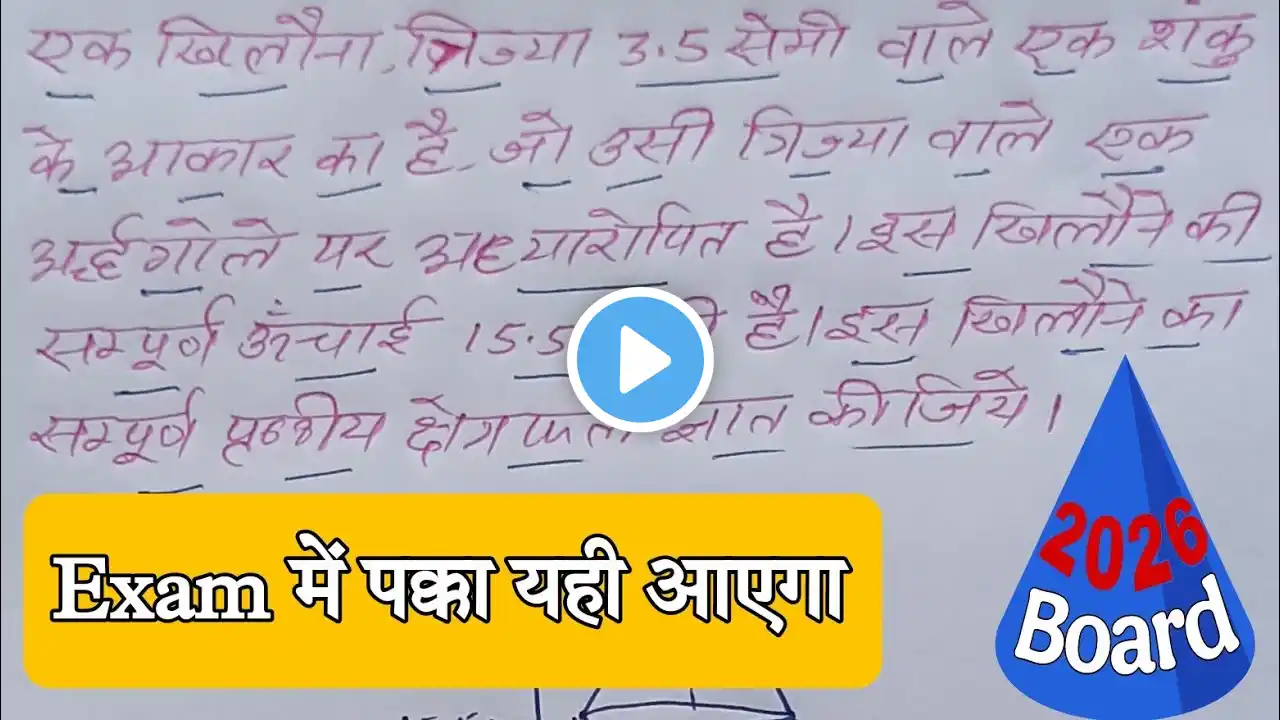 एक खिलौना, त्रिज्या 3.5 सेमी वाले एक शंकु
के आकार का है, जो उसी त्रिज्या वाले एक
अर्द्धगोले पर अध्यारोपित है। इस खिलौने की
सम्पूर्ण ऊँचाई 15.5 है। इस खिलौने का
सम्पूर्ण पृष्ठीय क्षेत्रफल ज्ञात कीजिये।
Exam में पक्का यही आएगा
2026
Board